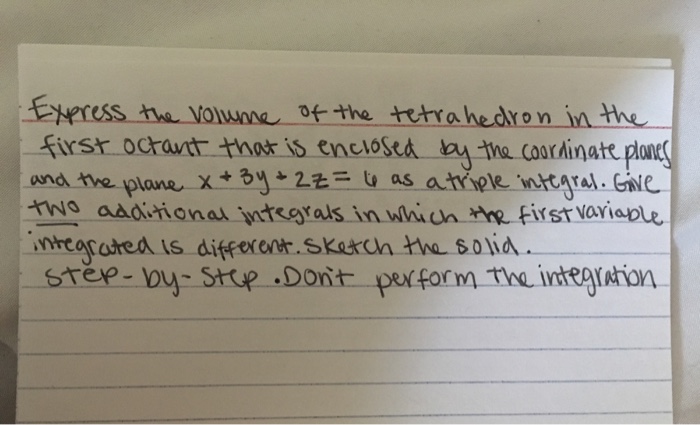 Express the volume of the tetrahedron in the
first octant that is enclosed by the coordinate planes
and the plane x + 3y + 2z = 6 as a triple integral. Give
two additional integrals in which the first variable
integrated is different. Sketch the solid.
step-by-step. Don't perform the integration